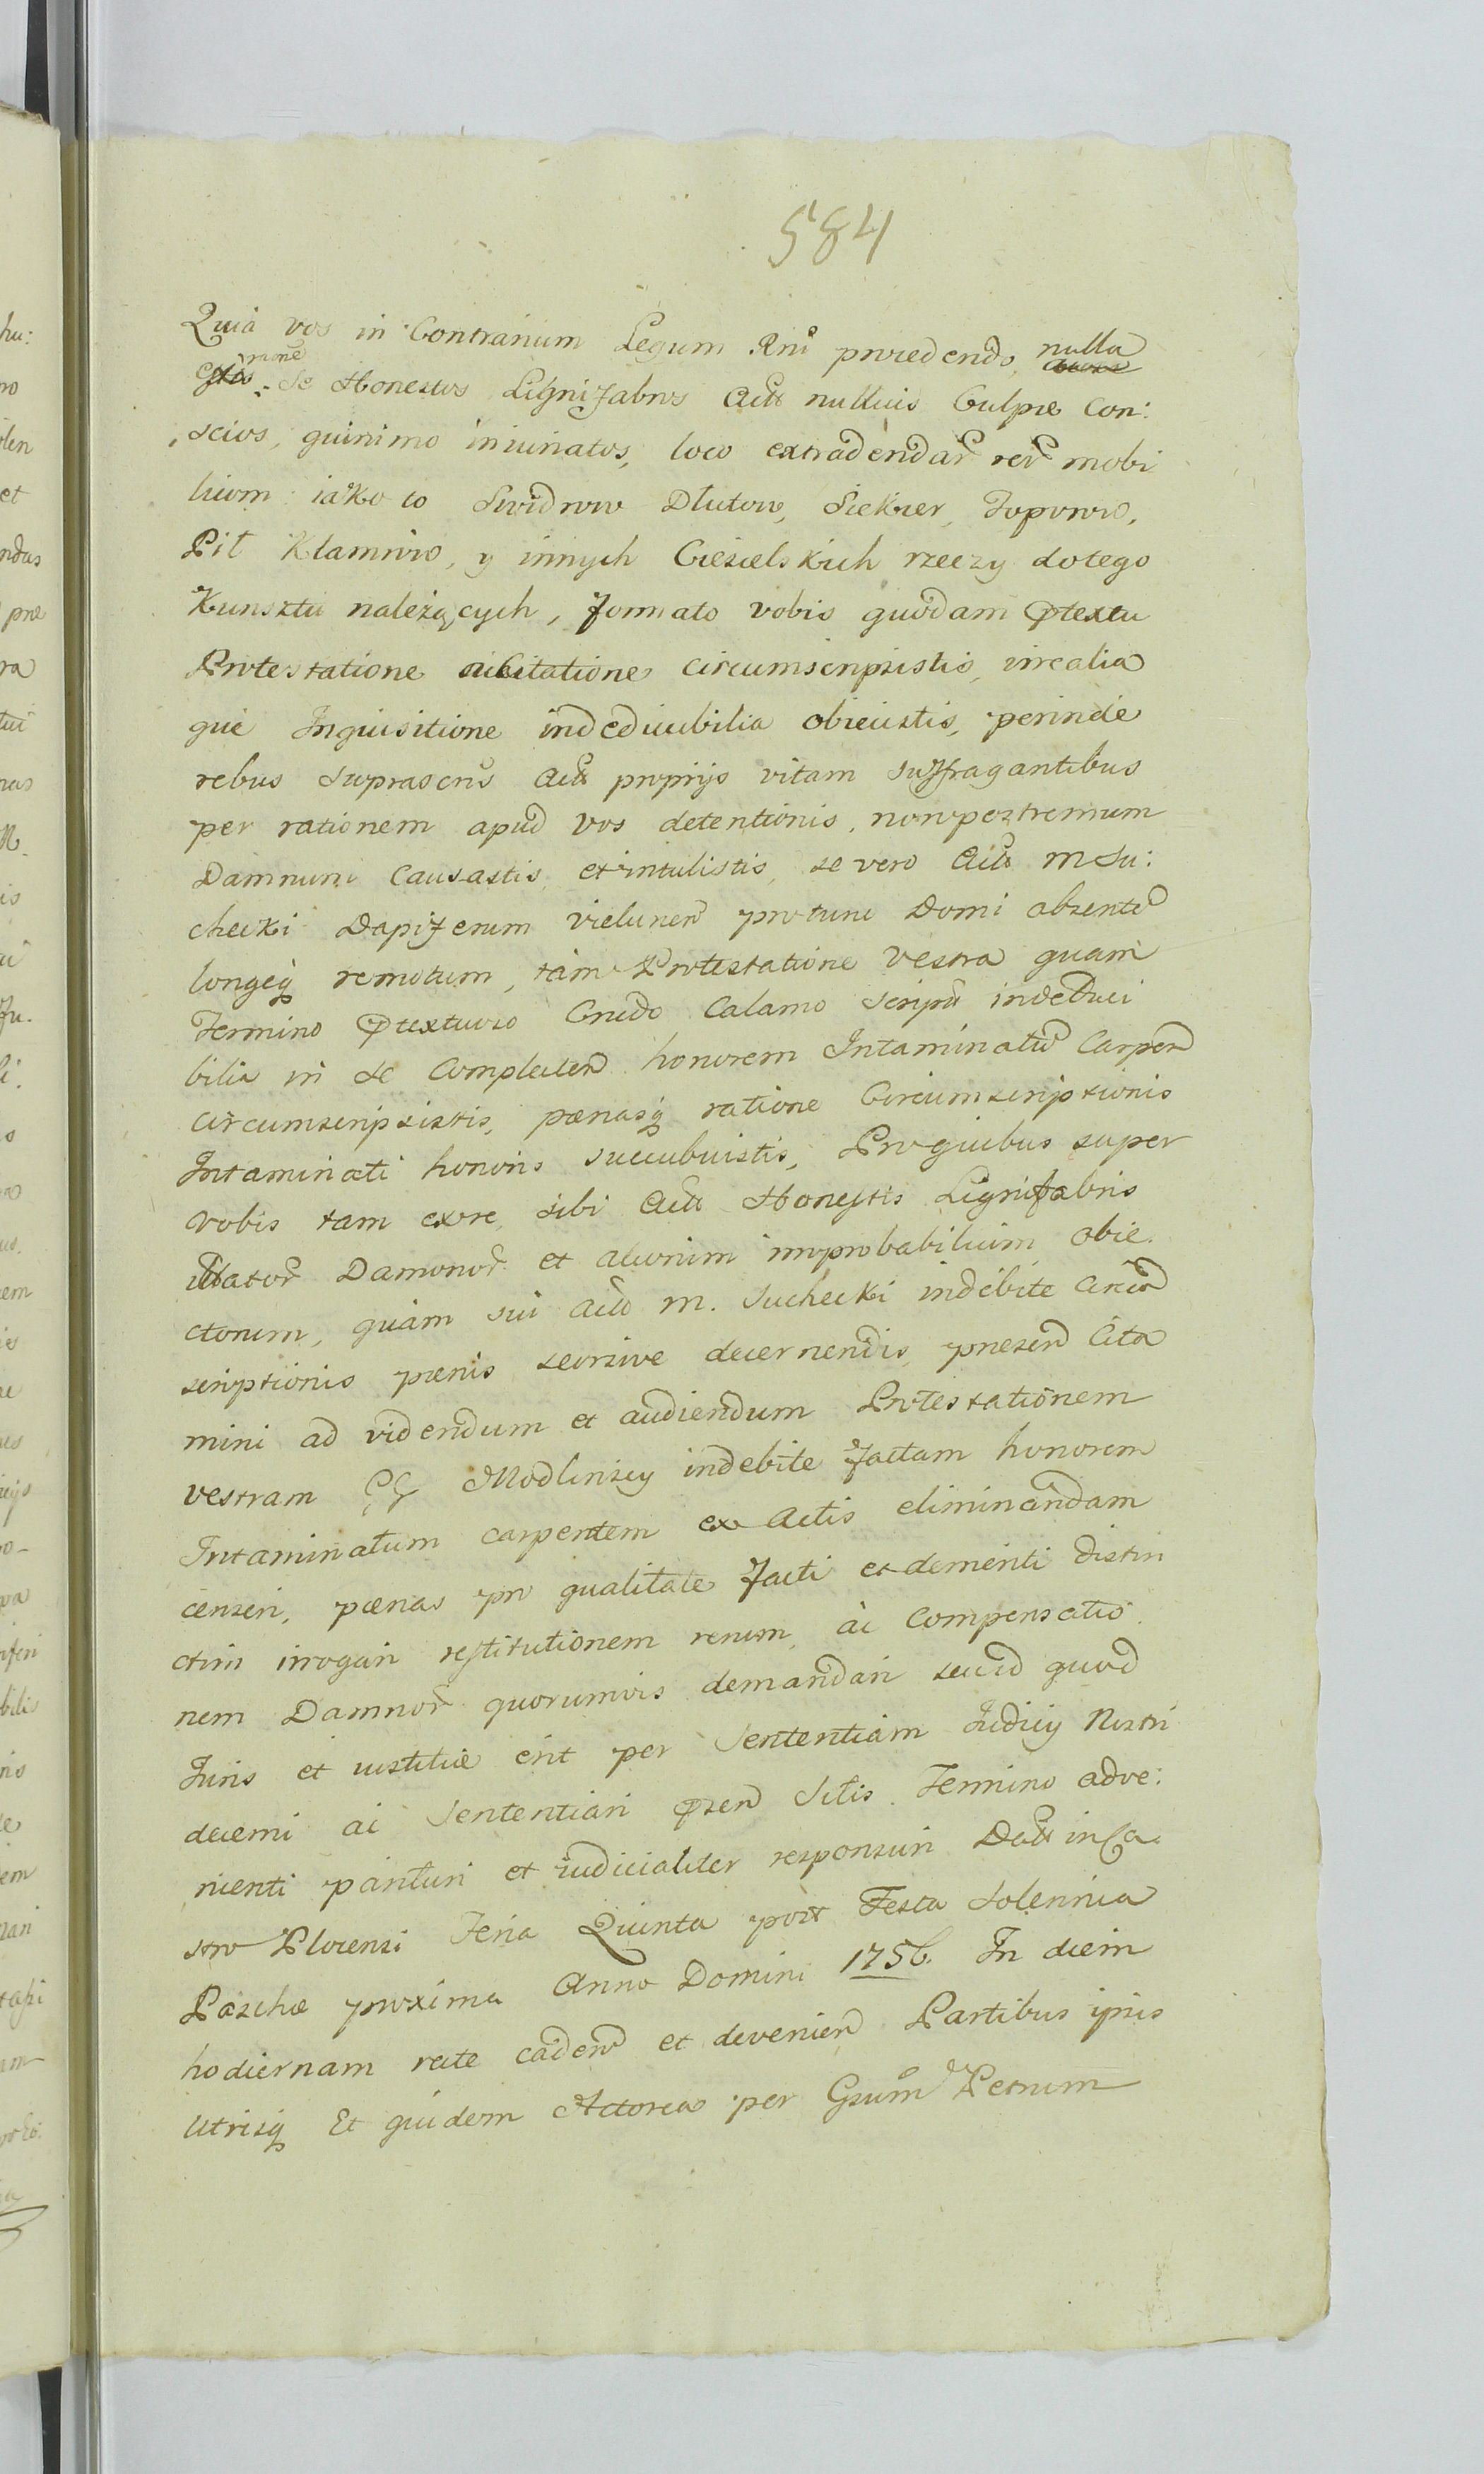 584
Quia vos in Contrarium Legum Rni procedendo, nulla
rãone Se Honestos Lignifabros Actt nullius Culpæ con:
scios, quinimo iniuriatos, loco extradendar rer mobi
lium iako to Swidrow Dłutow, Siekier, Toporow,
Pił Klamrow, y innych Ciesielskich rzeczy do tego
Kunsztu należących, formato vobis quodam Ptextu
Protestatione Citatione circumscripsistis, irrealia
que Inquisitione indeducibilia obiecistis, perinde
rebus suprascris Actt proprijs vitam suffragantibus
per rationem apud vos detentionis, non postremum
Damnum Causastis, et intulistis, se vero Actt M Su:
checki Dapiferum vielunen pro tunc Domi absentem
longeq remotum, tam Protestatione Vestra quam
Termino Ptextuoso Crudo Calamo script indeduci
bilia in se Complecten honorem Intaminatu Carpen
circumscripsistis, pœnasq ratione Circumscriptionis
Intaminati honoris succubuistis, Pro quibus super
vobis tam ex re sibi Actt Honestis Lignifabris
illator Damnnor et aliorum improbabilium obie
ctorum, quam sui Acto M. Suchecki indebite Circu
scriptionis pœnis seorsive decernendis, præsen Cita
mini ad videndum et audiendum Protestationem
vestram GG Modlinscy indebite factam honorem
Intaminatum carpentem ex Actis eliminandam
censeri, pœnas pro qualitate facti et demeriti distin
ctim irrogari restitutionem rerum, ac Compensatio
nem Damnor quorumvis demandari secud quod
Juris et iustitiæ erit per Sententiam Judicij Nostri
decerni ac Sententiari Psen Sitis Termino adve:
nienti parituri et iudicialiter responsuri Datt in Ca
stro Plocensi Feria Quinta post Festa Solennia
Paschæ proxima Anno Domini 1756. In diem
hodiernam recte caden et devenien Partibus ipsis
utrisq Et quidem Actorea per Gsum Petrum